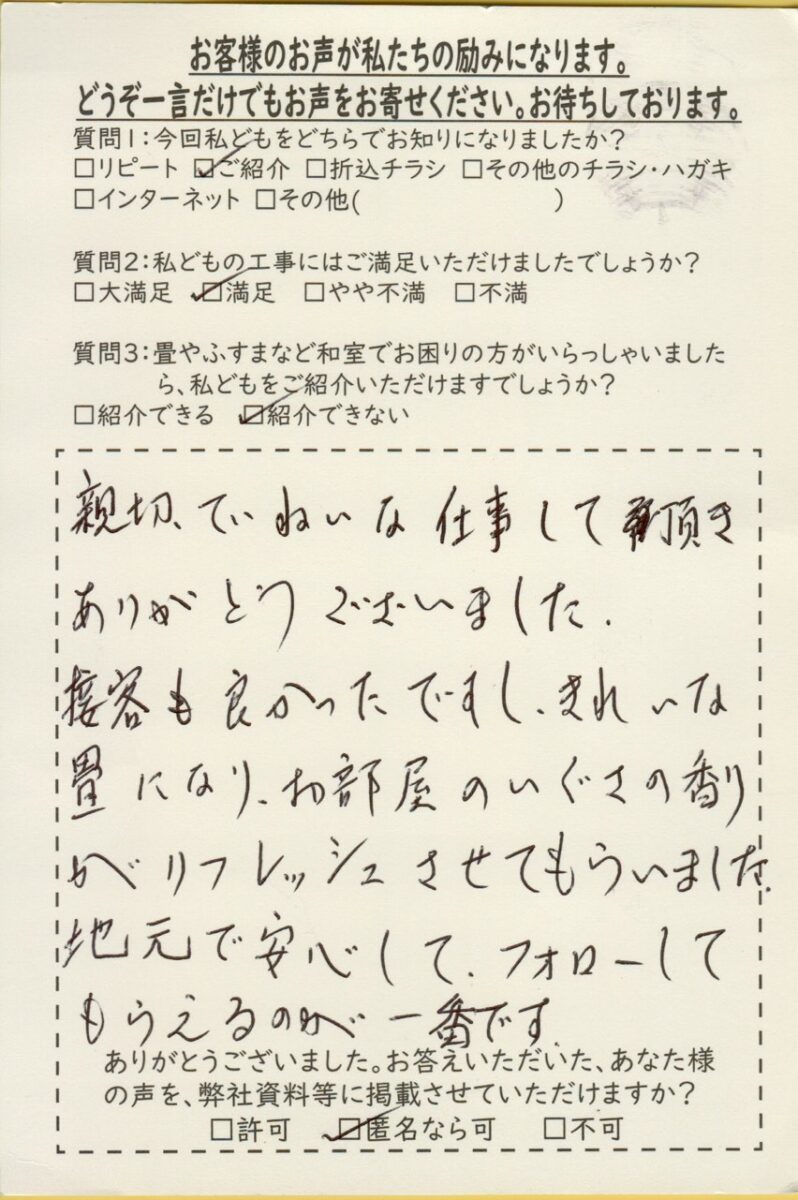 お客様のお声が私たちの励みになります。
どうぞ一言だけでもお声をお寄せください。お待ちしております。
質問1:今回私どもをどちらでお知りになりましたか?
□リピート ☑ご紹介 □折込チラシ □その他のチラシ・ハガキ
□インターネット □その他( )
質問2:私どもの工事にはご満足いただけましたでしょうか?
□大満足 ☑満足 □やや不満 □不満
質問3:畳やふすまなど和室でお困りの方がいらっしゃいました
ら、私どもをご紹介いただけますでしょうか?
□紹介できる ☑紹介できない
親切、ていねいな仕事して頂き
ありがとうございました.
接客も良かったですし、きれいな
畳になり、お部屋のいぐさの香り
がリフレッシュさせてもらいました.
地元で安心して、フォローして
もらえるのが一番です.
ありがとうございました。お答えいただいた、あなた様
の声を、弊社資料等に掲載させていただけますか?
□許可 ☑匿名なら可 □不可